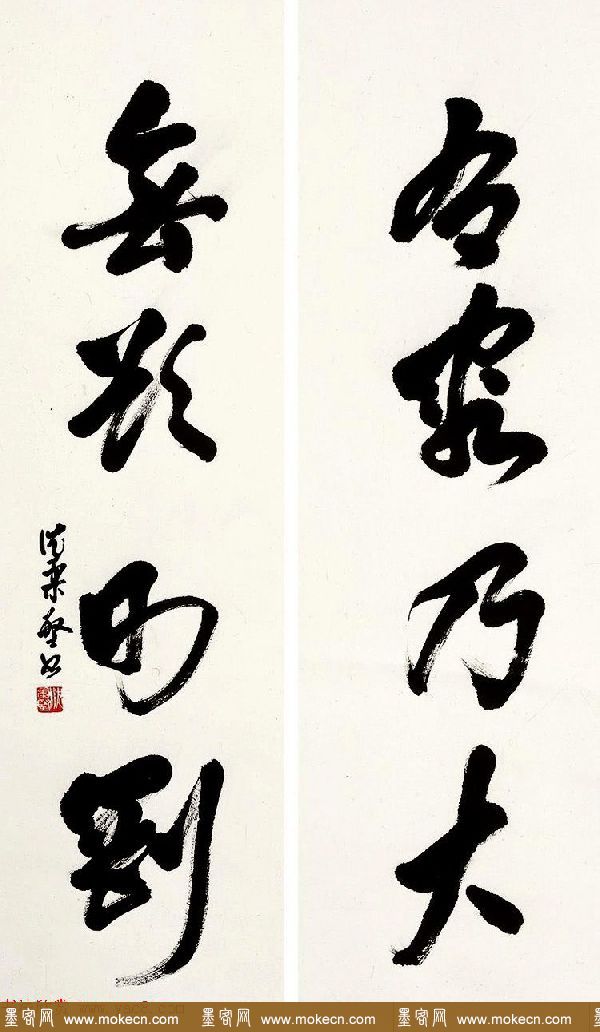 有容乃大
無欲則剛
墨客网 www.mokecn.com 墨客网 www.mokecn.com 墨客网 www.mokecn.com